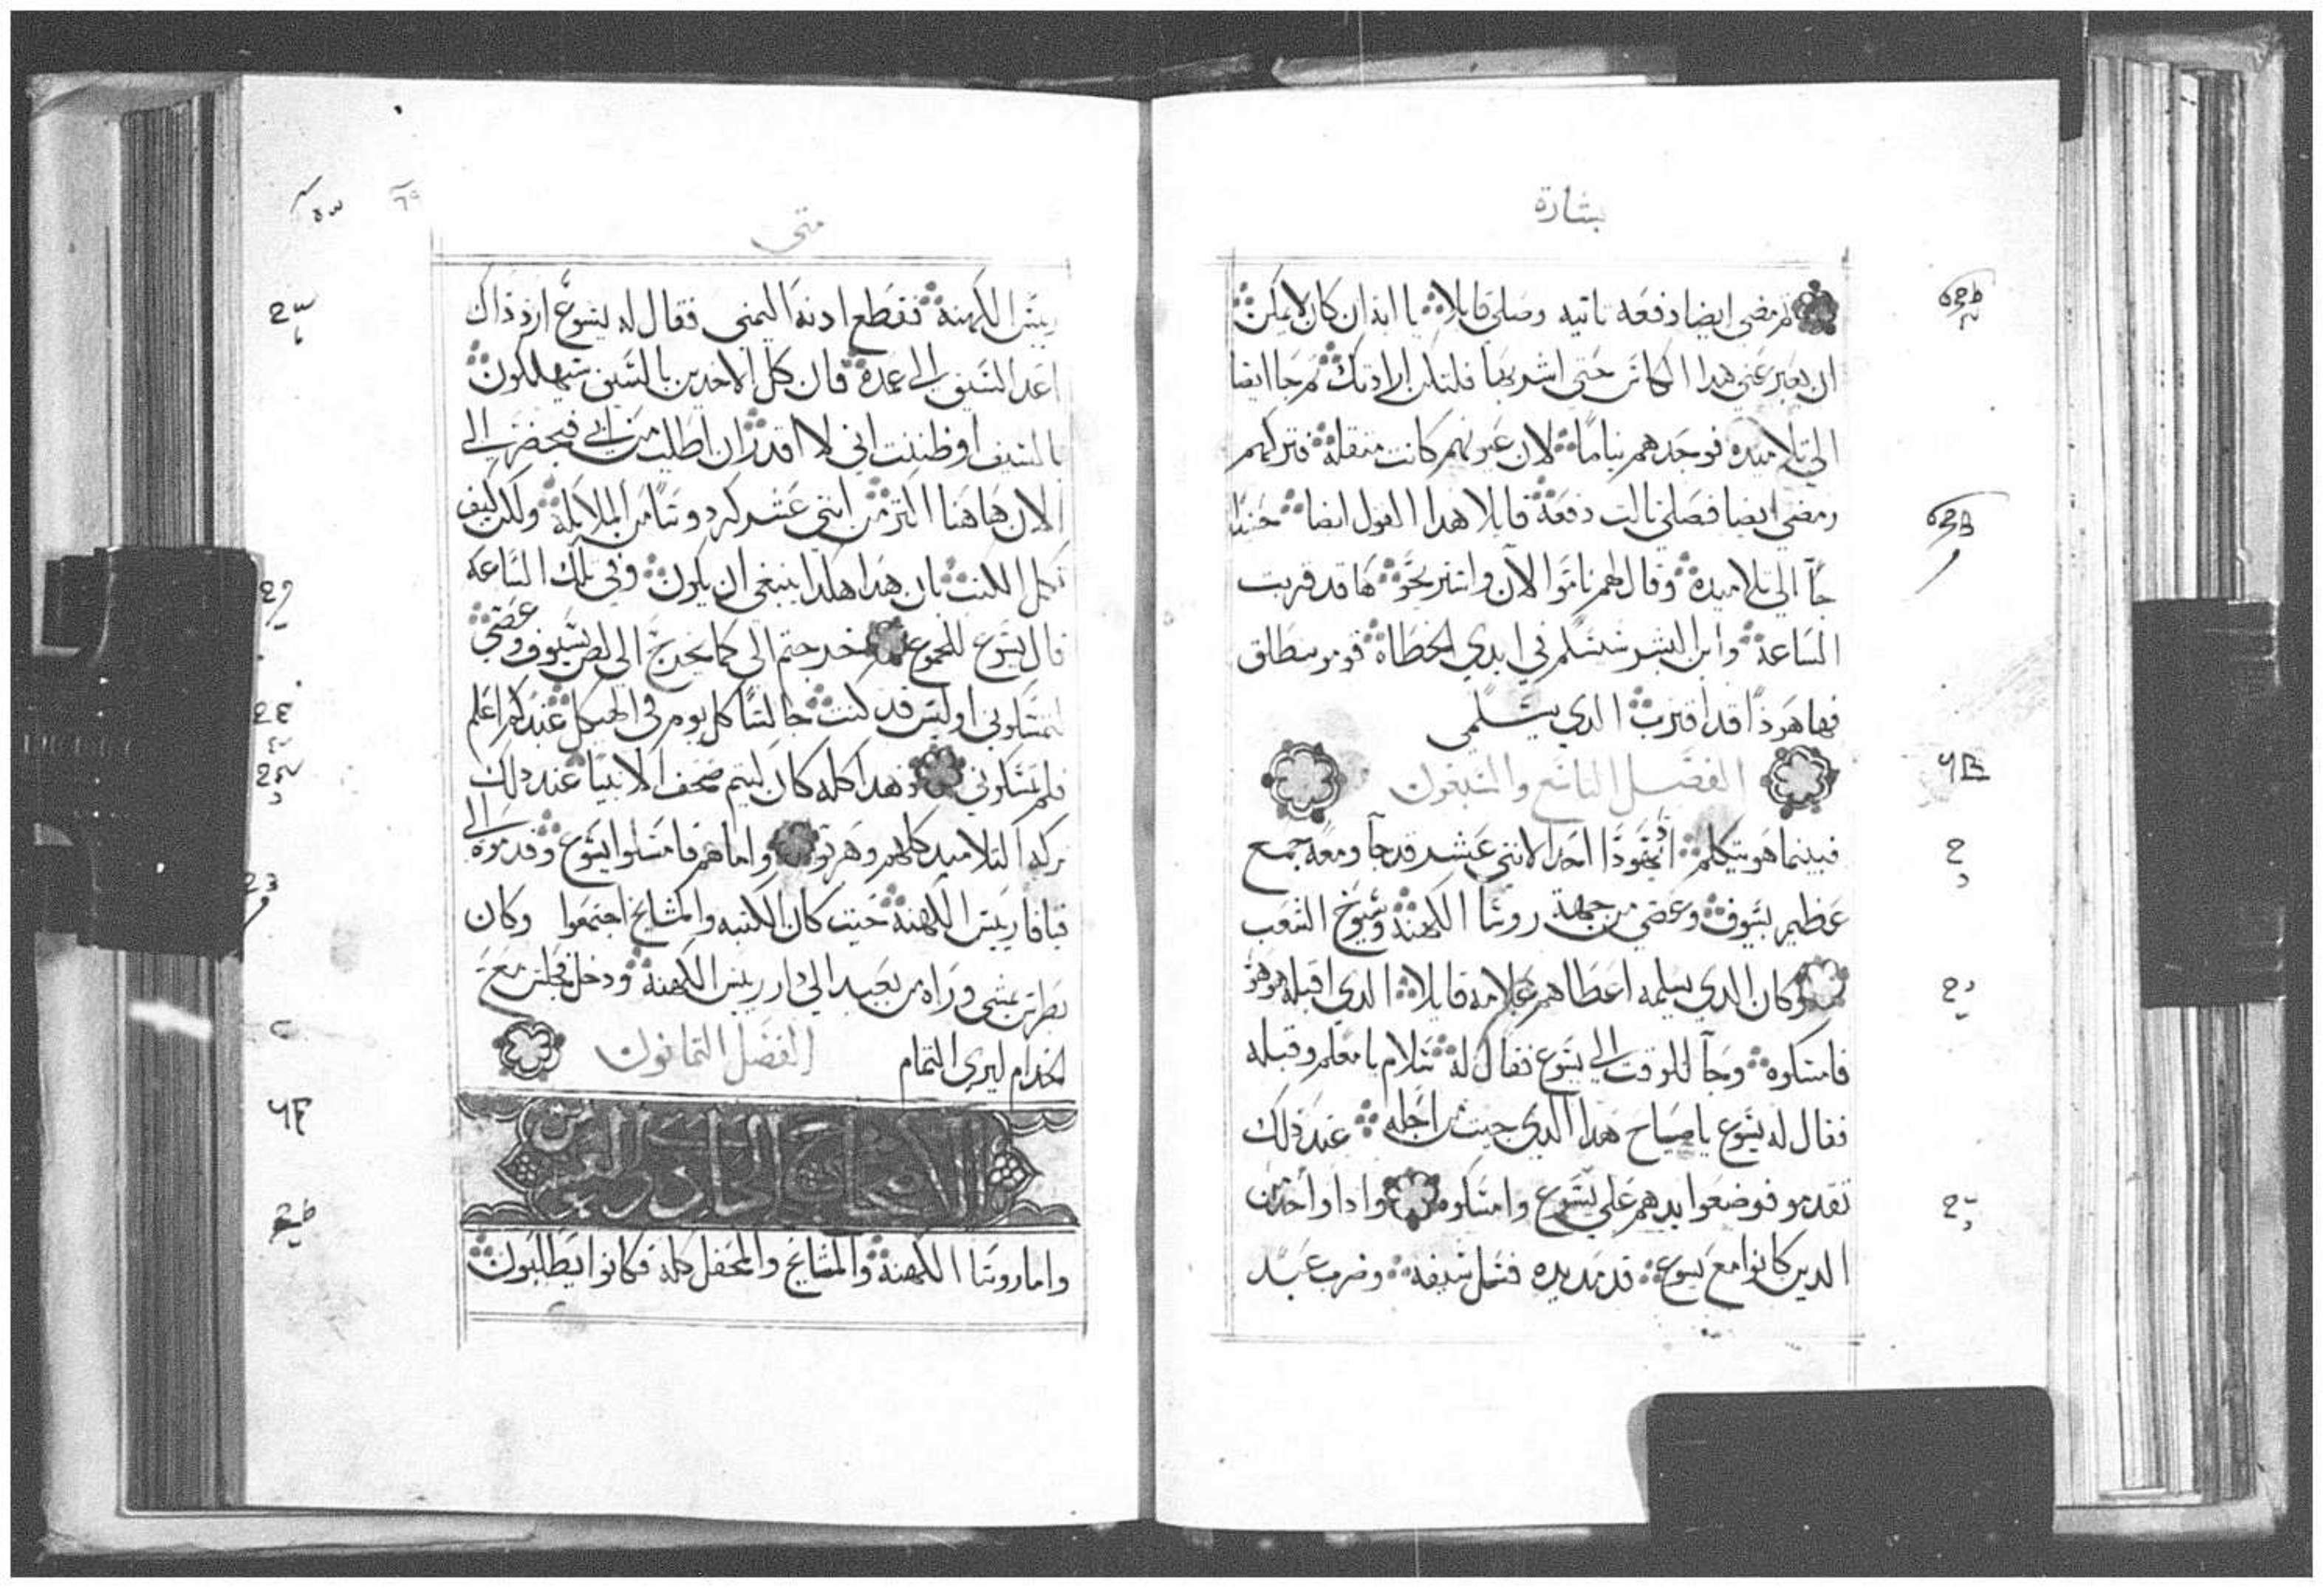 بشارة
ثم مضى ايضا دفعه تانيه وصلى قايلا يا ابه ان كان لا يمكن
ان يعبر عني هدا الكاس حتى اشربها فلتكن ارادتك ثم جا ايضا
الى تلاميده فوجدهم نياما لان عيونهم كانت متقله فتركهم
ومضى ايضا فصلى تالت دفعة قايلا هدا القول ايضا حينيد
جا الى تلاميده وقال لهم ناموا الآن واستريحو ها قد قربت
الساعة وابن البشر سيسلم في ايدي الخطاه قومو ننطلق
فها هودا قد اقترب الدي يسلمي
الفصل التاسع والسبعون
فبينما هو يتكلم ادا يهودا احد الاتني عشر قد جا ومعه جمع
عظيم بسيوف وعصي من جهة روسا الكهنة وشيوخ الشعب
وكان الدي يسلمه اعطاهم علامه قايلا الدي اقبله هو هو
فامسكوه وجا للوقت الى يسوع فقال له سلام يا معلم وقبله
فقال له يسوع يا صاح هدا الدي جيت من اجله عند دلك
تقدمو فوضعوا يدهم على يسوع وامسكوه وادا واحد من
الدين كانوا مع يسوع قد مد يده فسل سيفه وضرب عبد
متى
رييس الكهنة فقطع ادنه اليمنى فقال له يسوع
اعد السيف الى غمده فان كل الاخدين بالسيف سيهلكون
بالسيف او ظننت اني لا اقدر ان اطلب من ابي فيحضر الى
الان هاهنا اكتر من اتني عشر كردوسا من الملايكة ولكن كيف
تكمل الكتب بان هدا هكدا ينبغي ان يكون وفي تلك الساعة
قال يسوع للجموع خرجتم الي كما يخرج الى لص بسيوف وعصي
لتمسكوني اوليس قد كنت جالسا كل يوم في الهيكل عندكم اعلم
فلم تمسكوني وهدا كله كان ليتم صحف الانبيا عند دلك
تركه التلاميد كلهم وهربو واما هم فامسكوا يسوع وقدموه الى
قيافا رييس الكهنة حيت كان الكتبه والمشايخ اجتمعوا وكان
بطرس يمشي وراه من بعيد الى دار رييس الكهنة ودخل فجلس مع
الخدام ليرى التمام الفصل التمانون
الاصحاح الحادي والستون
واما روسا الكهنة والمشايخ والمحفل كله فكانوا يطلبون